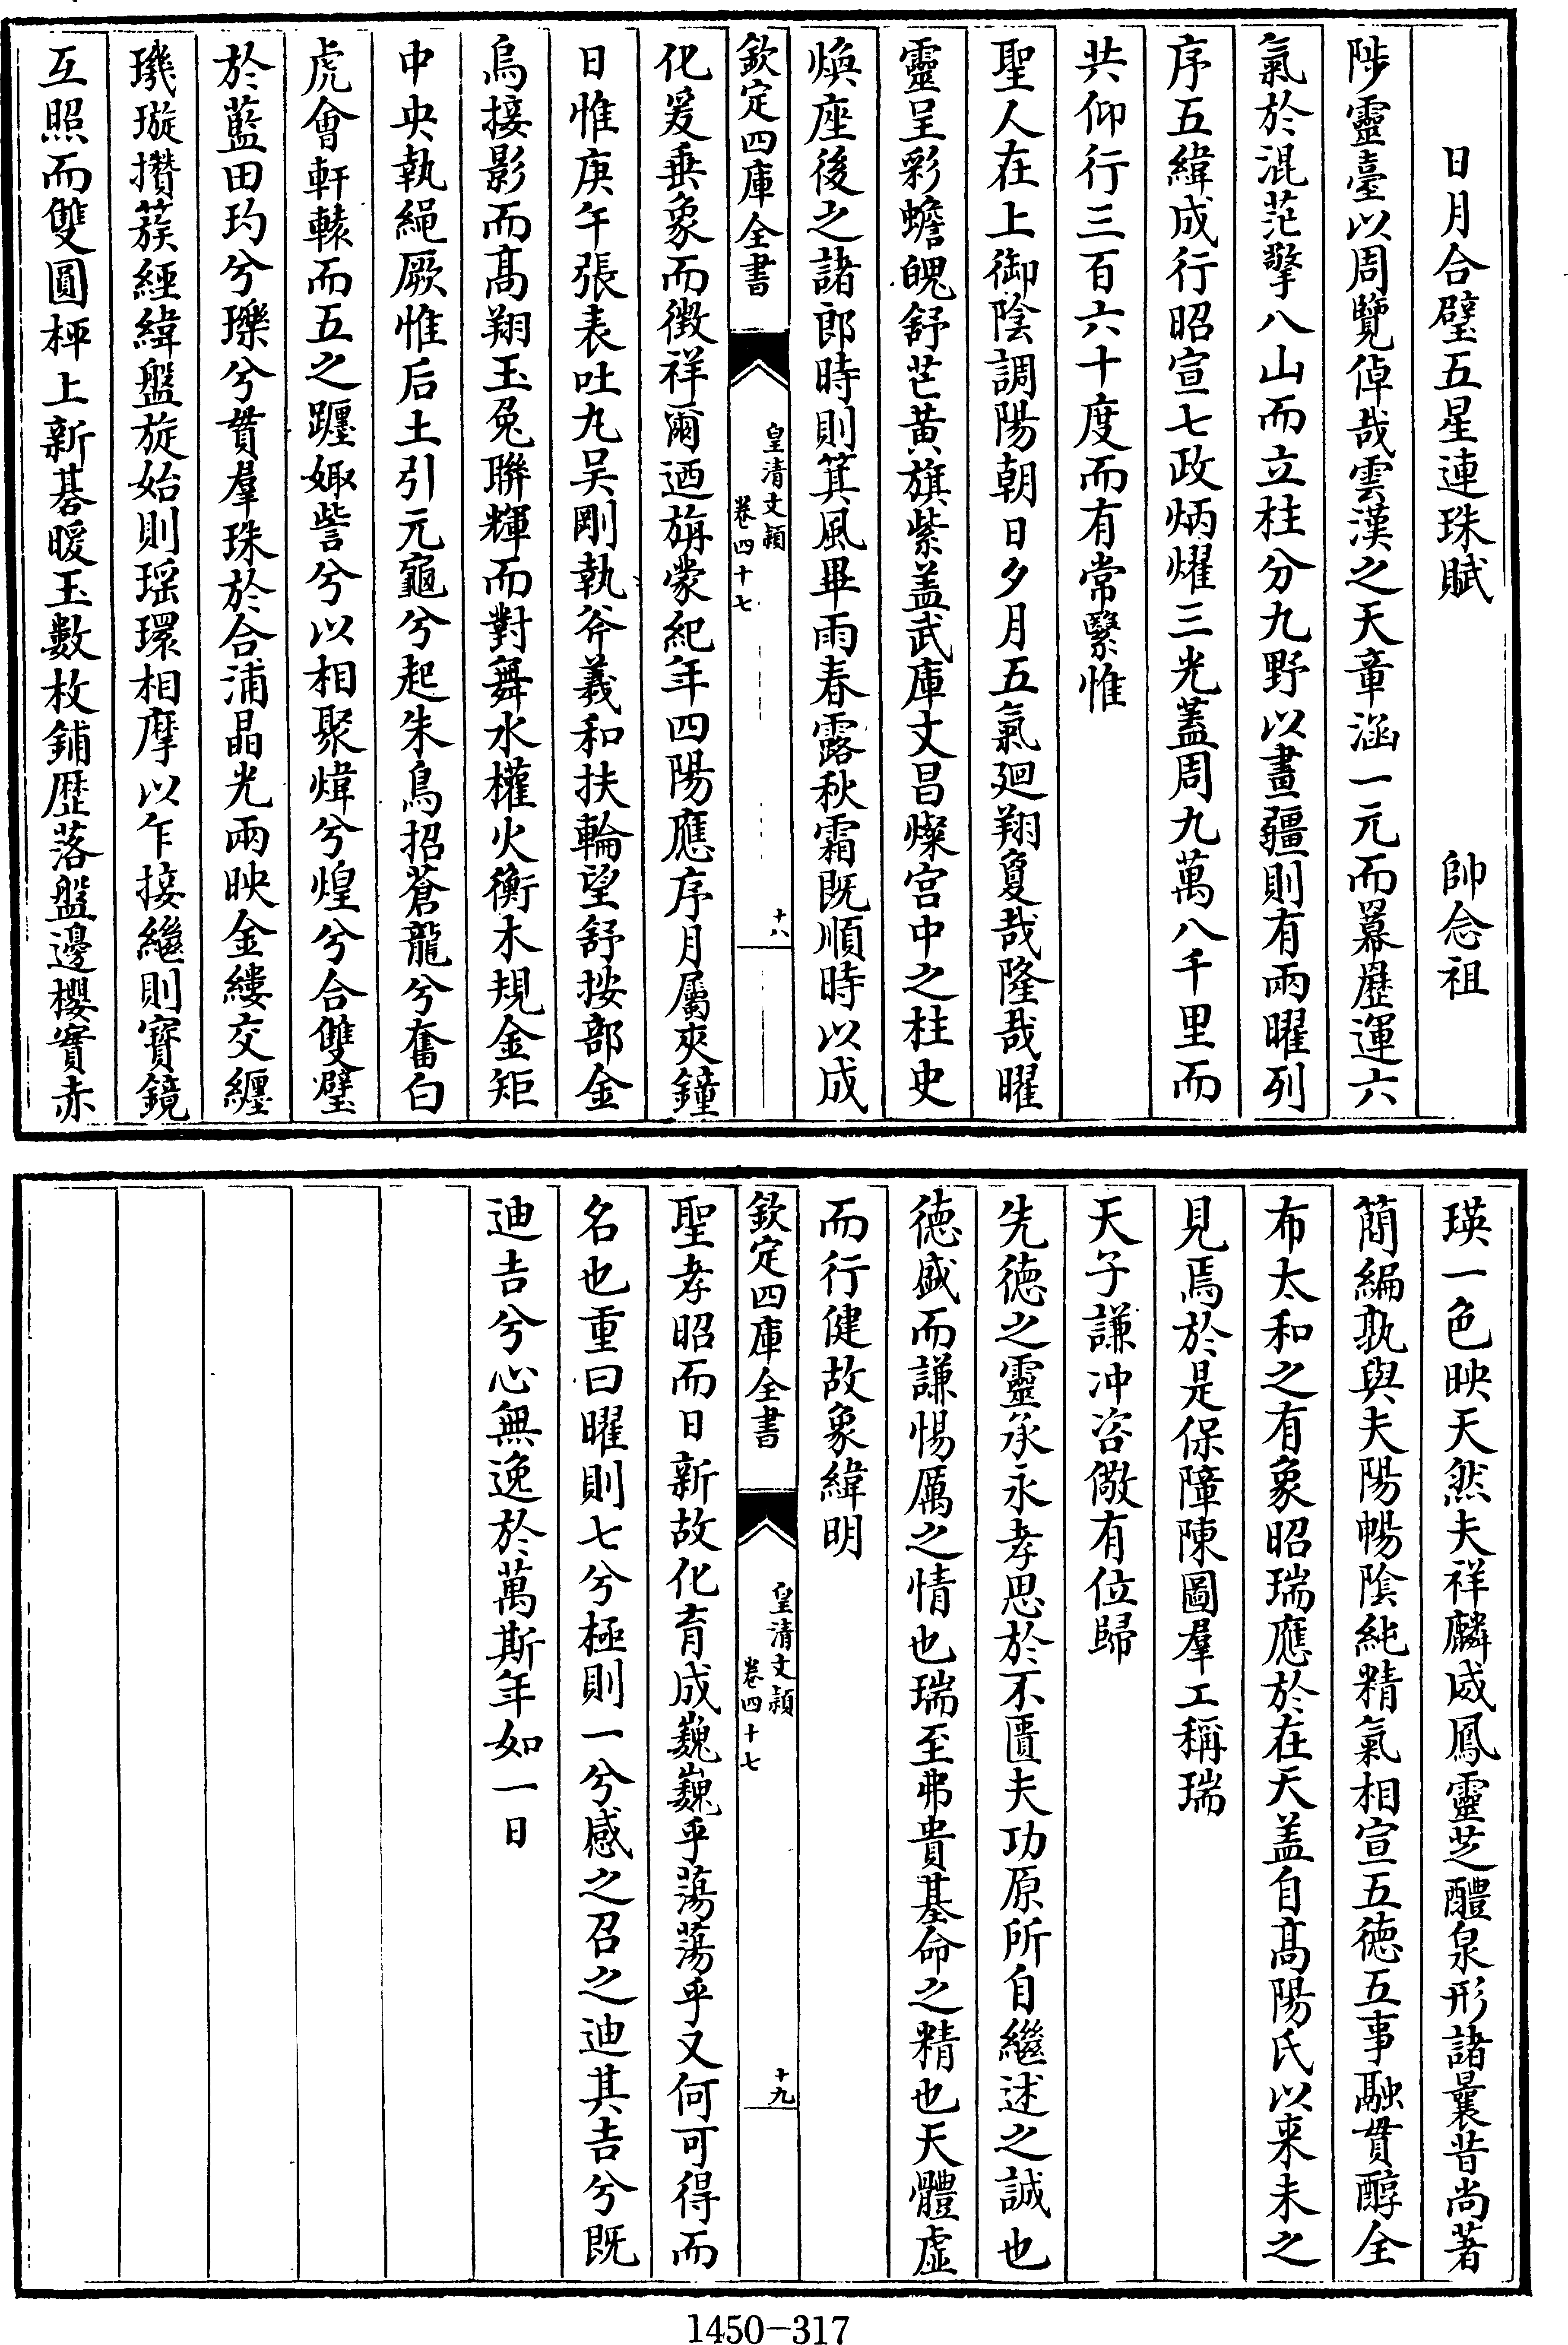 日月合璧五星連珠賦　帥念祖
陟靈臺以周覽倬哉雲漢之天章涵一元而羃歴運六
氣於混茫擎八山而立柱分九野以畫疆則有兩曜列
序五緯成行昭宣七政炳燿三光蓋周九萬八千里而
共仰行三百六十度而有常繄惟
聖人在上御陰調陽朝日夕月五氣廻翔夐哉隆哉曜
靈呈彩蟾魄舒芒黃旗紫盖武庫文昌燦宫中之柱史
煥座後之諸郎時則箕風畢雨春露秋霜既順時以成
欽定四庫全書
皇清文穎
卷四十七
十八
化爰垂象而徴祥爾迺旃蒙紀年四陽應序月屬夾鐘
日惟庚午張表吐九吴剛執斧羲和扶輪望舒按部金
烏接影而髙翔玉兔聯輝而對舞水權火衡木規金矩
中央執繩厥惟后土引元龜兮起朱鳥招蒼龍兮奮白
虎會軒轅而五之躔娵訾兮以相聚煒兮煌兮合雙璧
於藍田玓兮瓅兮貫羣珠於合浦晶光兩映金縷交纒
璣璇攅蔟經緯盤旋始則瑶環相摩以乍接繼則寳鏡
互照而雙圓枰上新碁暖玉數枚鋪歴落盤邊櫻實赤
瑛一色映天然夫祥麟威鳳靈芝醴泉形諸曩昔尚著
簡編孰與夫陽暢隂純精氣相宣五徳五事融貫醇全
布太和之有象昭瑞應於在天盖自髙陽氏以来未之
見焉於是保障陳圖羣工稱瑞
天子謙冲咨儆有位歸
先徳之靈承永孝思於不匱夫功原所自繼述之誠也
徳盛而謙惕厲之情也瑞至弗貴基命之精也天體虚
而行健故象緯明
欽定四庫全書
皇清文穎
卷四十七
十九
聖孝昭而日新故化育成巍巍乎蕩蕩乎又何可得而
名也重曰曜則七兮極則一兮感之召之迪其吉兮既
迪吉兮心無逸於萬斯年如一日
1450-317